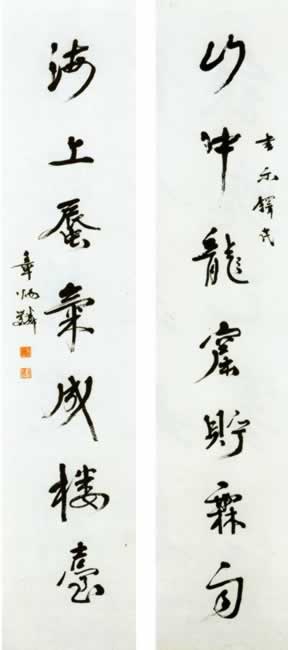 山中龍窟貯霖雨
書示鐸民
海上蜃氣成樓臺
章炳麟